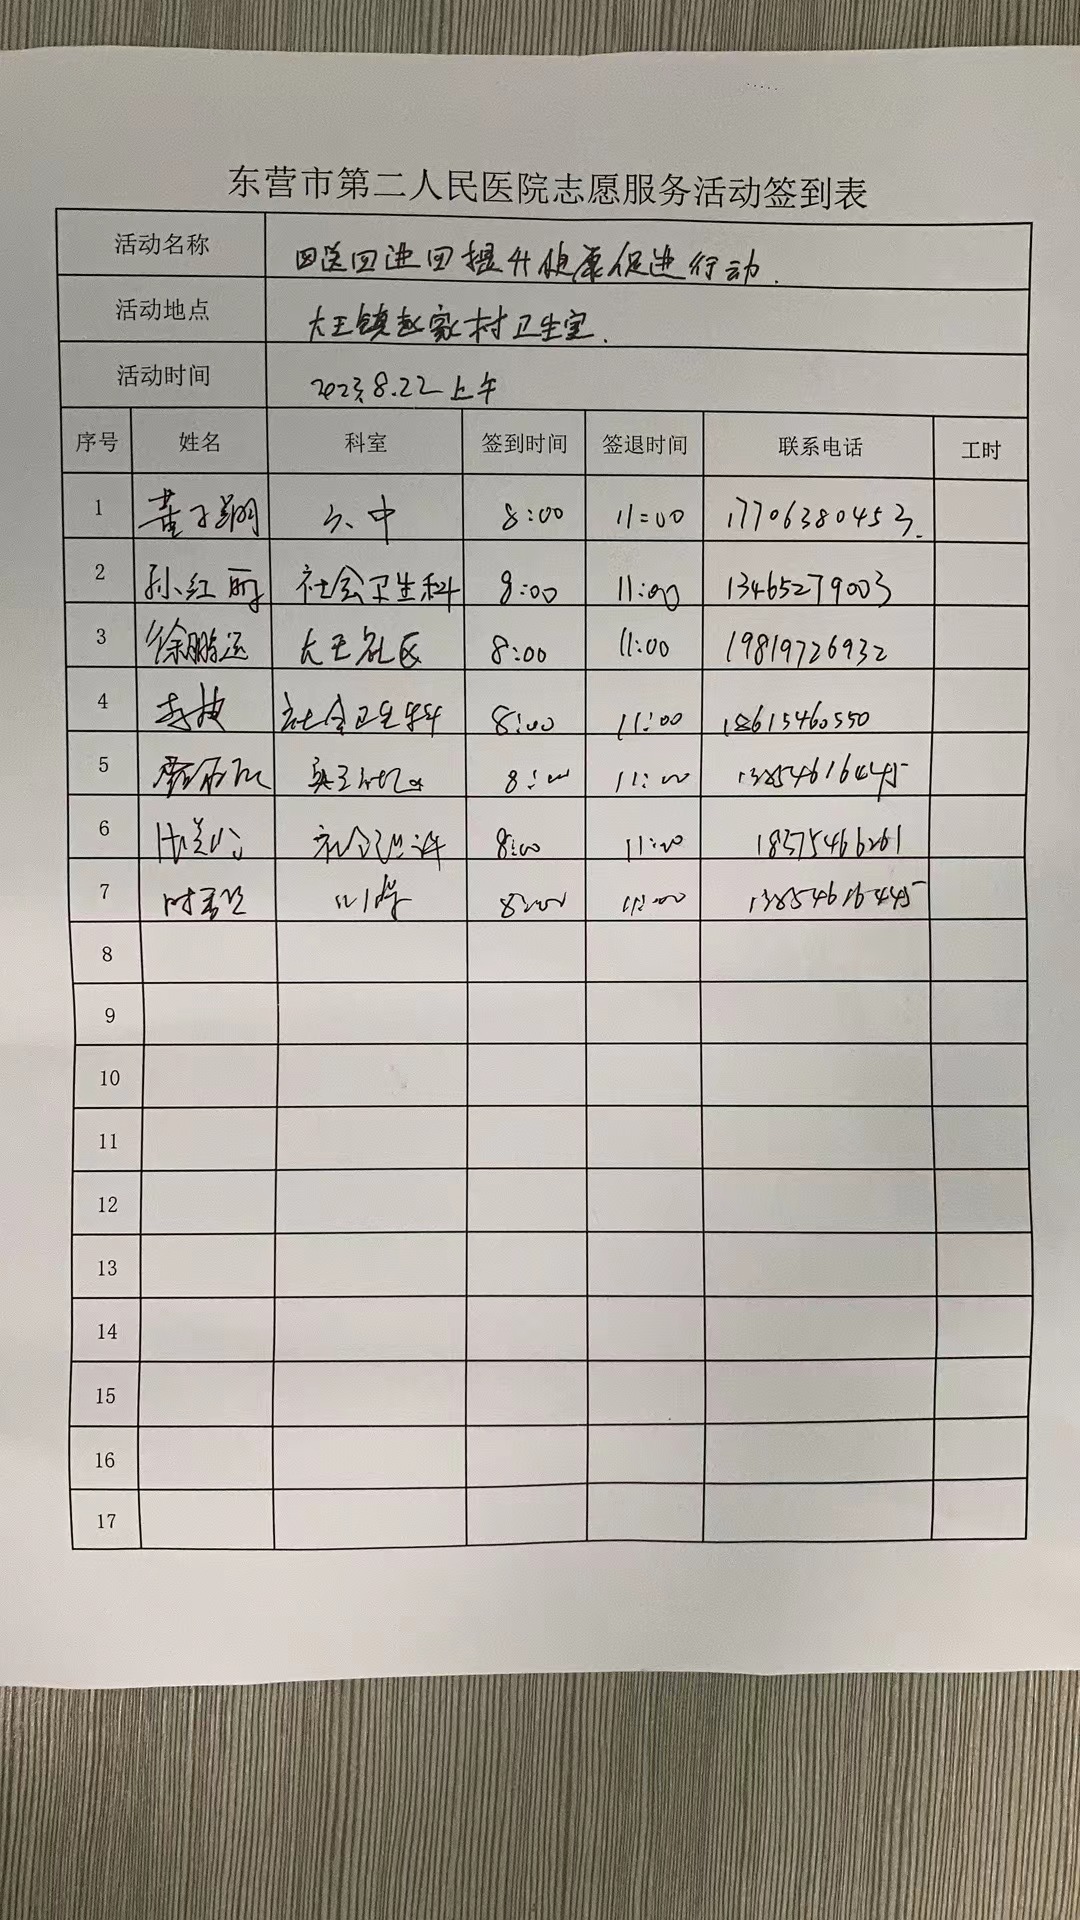 东营市第二人民医院志愿服务活动签到表
活动名称 四送四进四提升健康促进行动.
活动地点 大王镇赵家村卫生室.
活动时间 2023.8.22上午
序号 姓名 科室 签到时间 签退时间 联系电话 工时
1 董子翔 8:00 11:00 17706380453.
2 孙红丽 社会卫生科 8:00 11:00 13465279003
3 徐鹏运 大王社区 8:00 11:00 19819726932
4 社会卫生科 8:00 11:00 18615460550
5 8:00 11:00 13854616445
6 8:00 11:00
7 8:00 11:00 13854616445
8
9
10
11
12
13
14
15
16
17